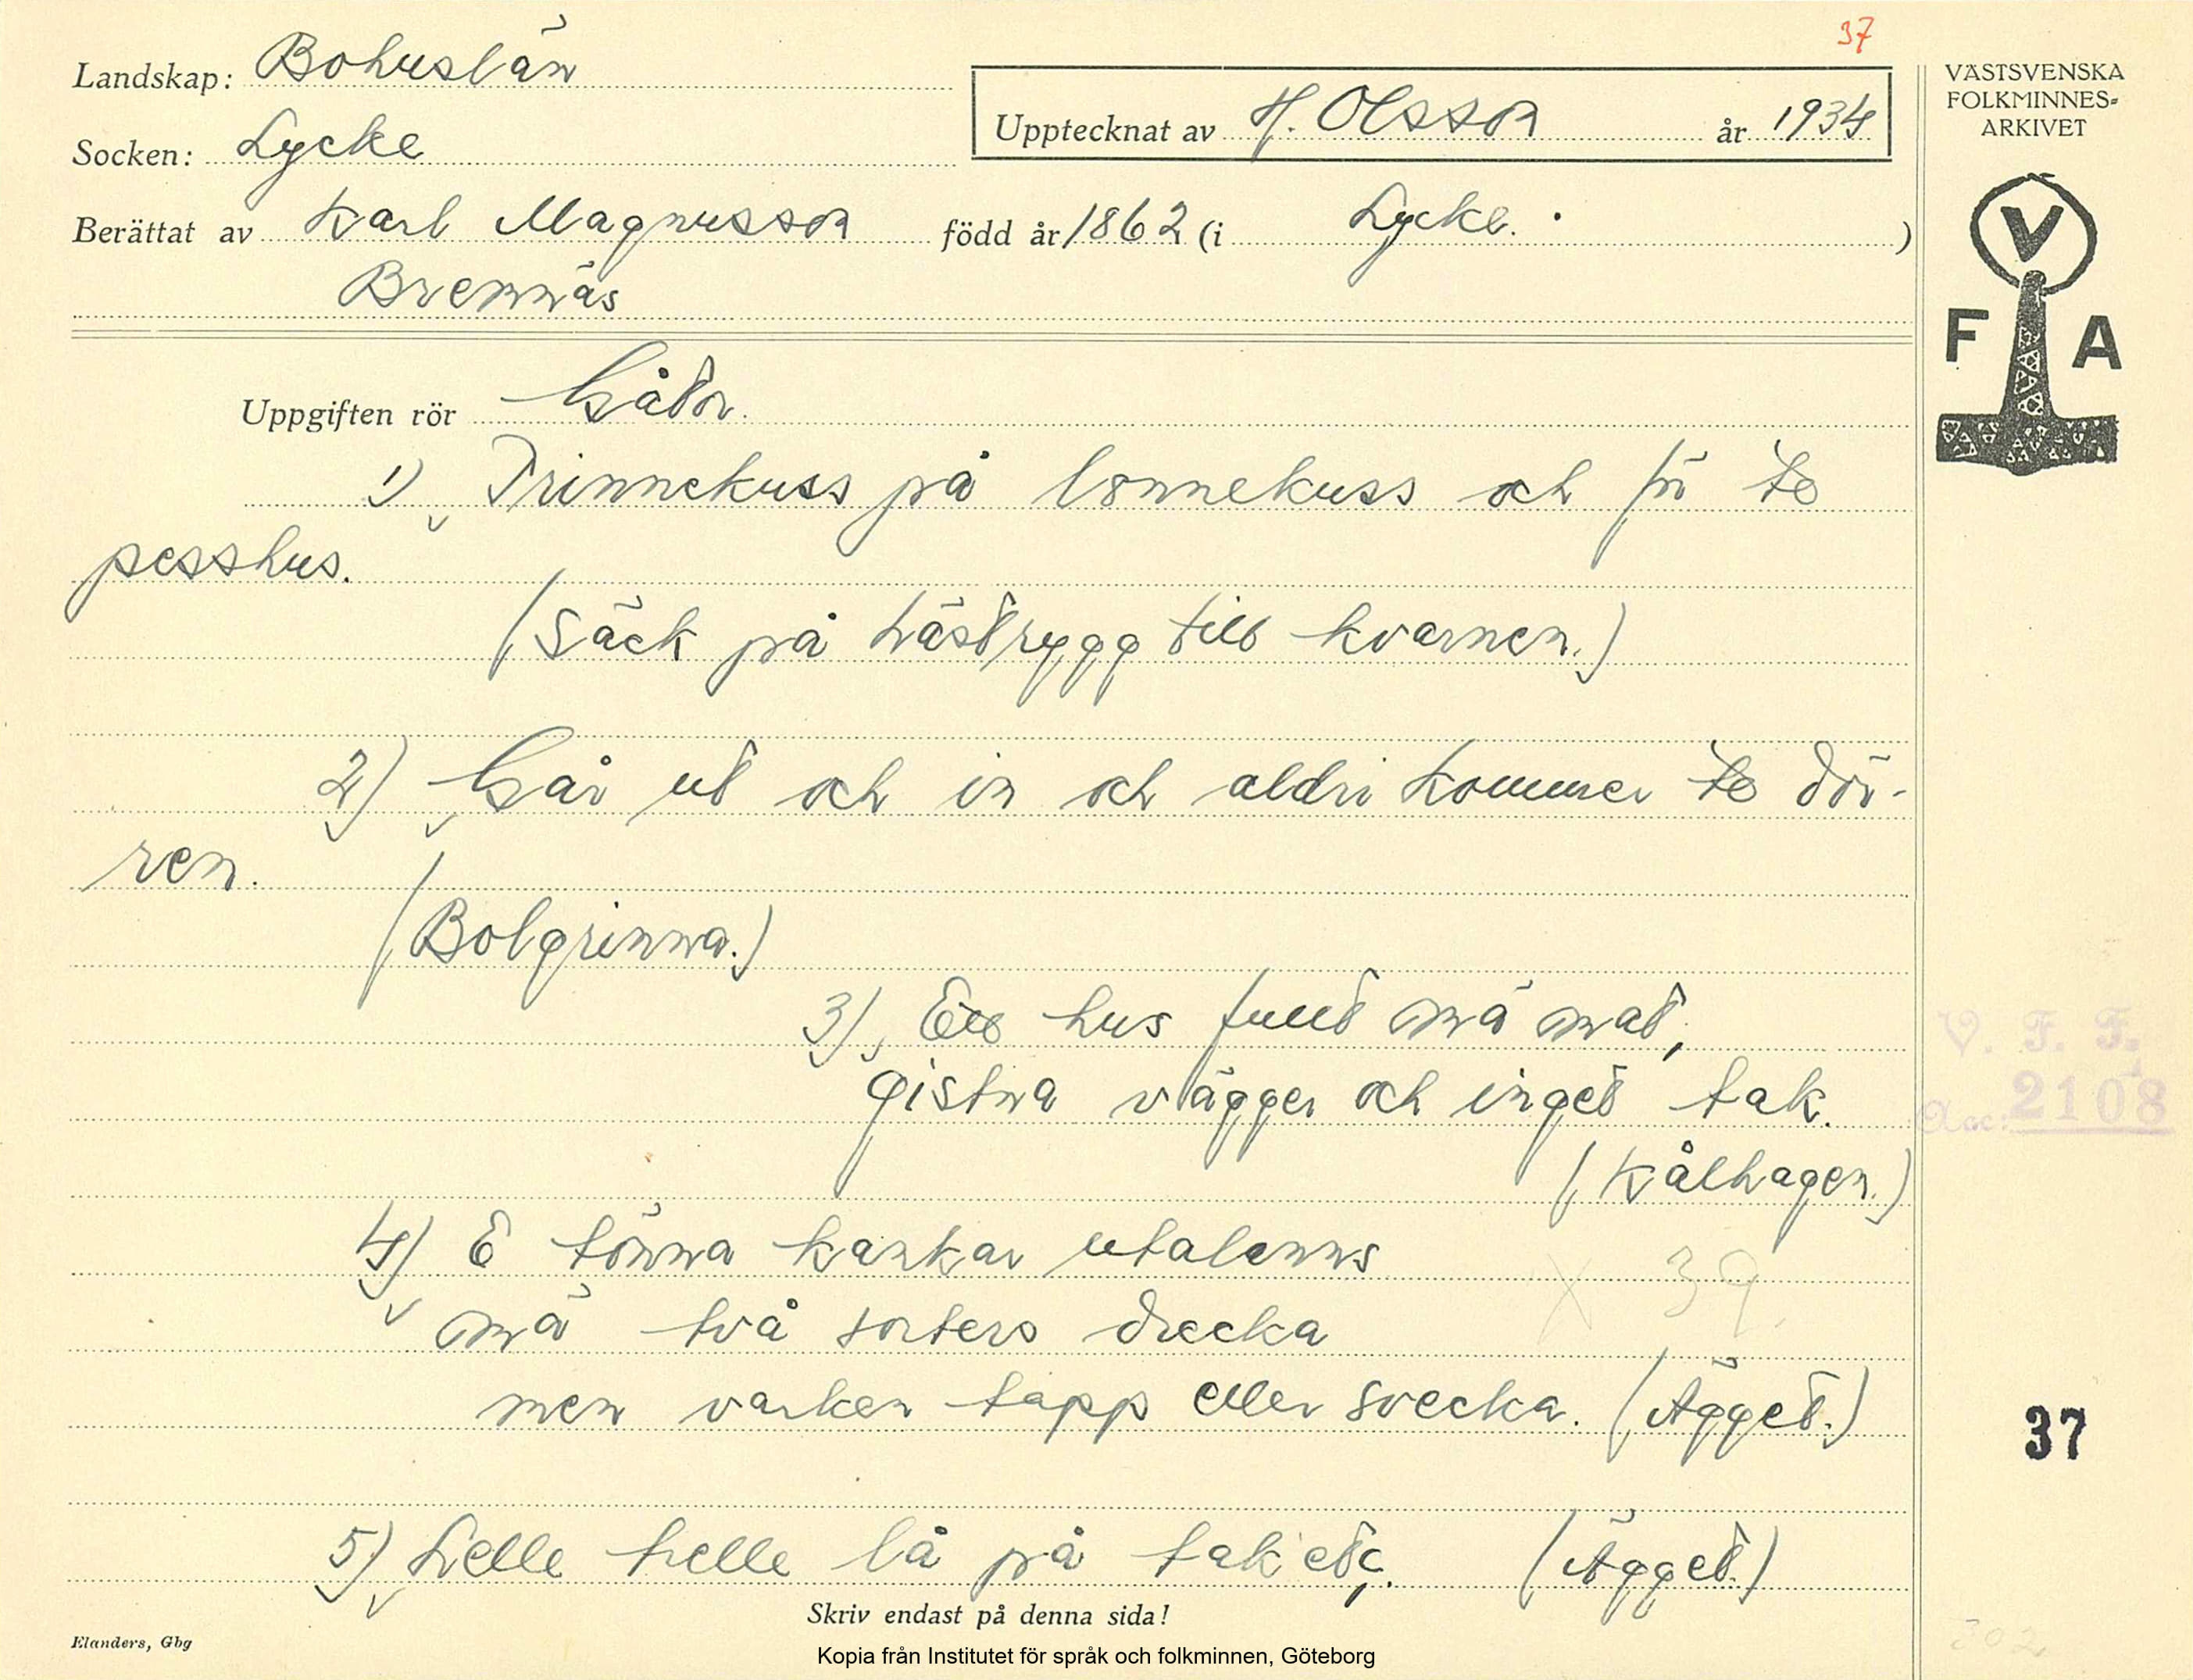 37
Landskap: Bohuslän
Socken: Lycke
Upptecknat av H. Olsson år 1934
Berättat av Karl Magnusson född år 1862 (i Lycke. )
Brennäs
VÄSTSVENSKA
FOLKMINNES-
ARKIVET
V
F A
Uppgiften rör Gåtor.
1) Trinnekuss på lonnekuss och te
pesshus.
(Säck på hästrygg till kvarnen.)
2) Går ut och in och aldri kommer te dör-
ren.
(Bolgrinna.)
3) Ett hus fullt mä mat,
gistna vägger och inget tak.
(Kålhagen.)
4) E tönna kankar utalenns
mä två sorters drecka
men varken tapp eller svecka. (Ägget.)
X 39.
5) Lelle trelle lå på tak etc. (Ägget.)
V. F. F.
Acc: 2108
37
302
Skriv endast på denna sida!
Elanders, Gbg
Kopia från Institutet för språk och folkminnen, Göteborg